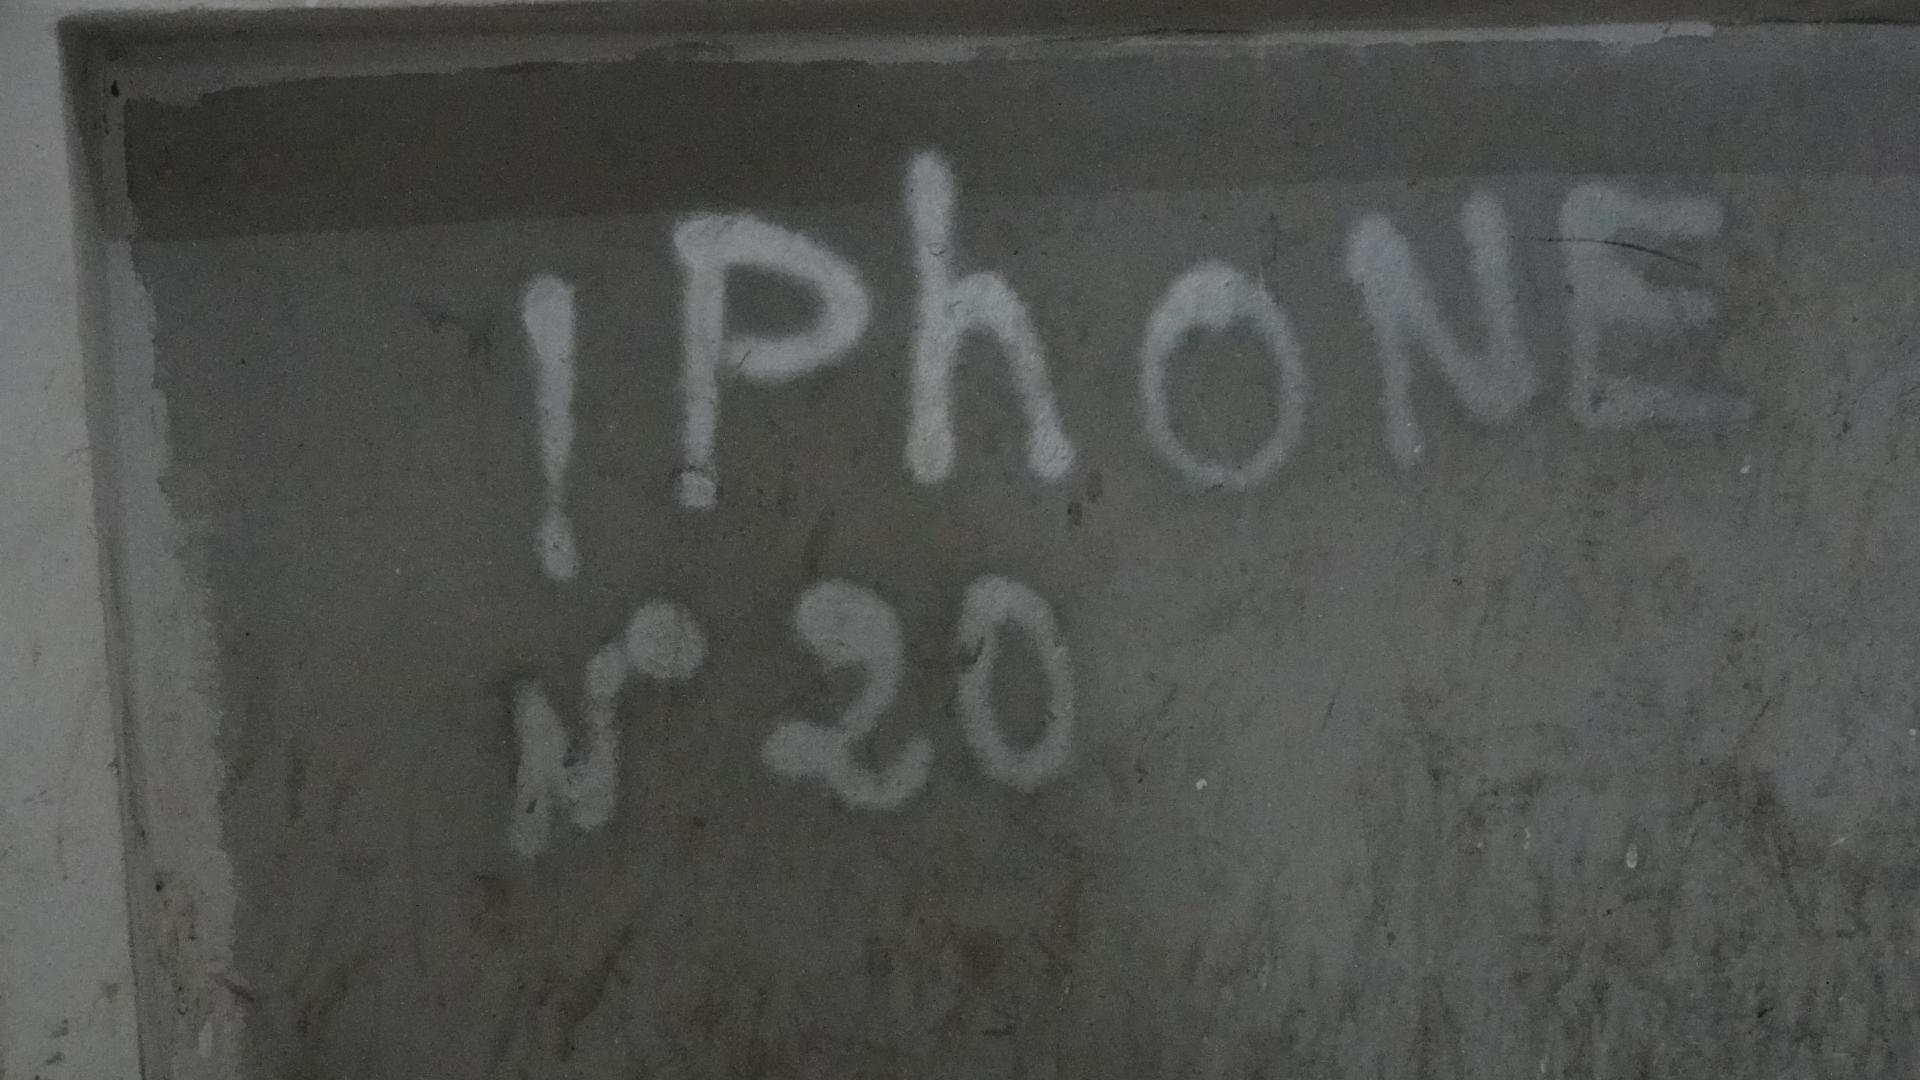 IPhONE
N° 20